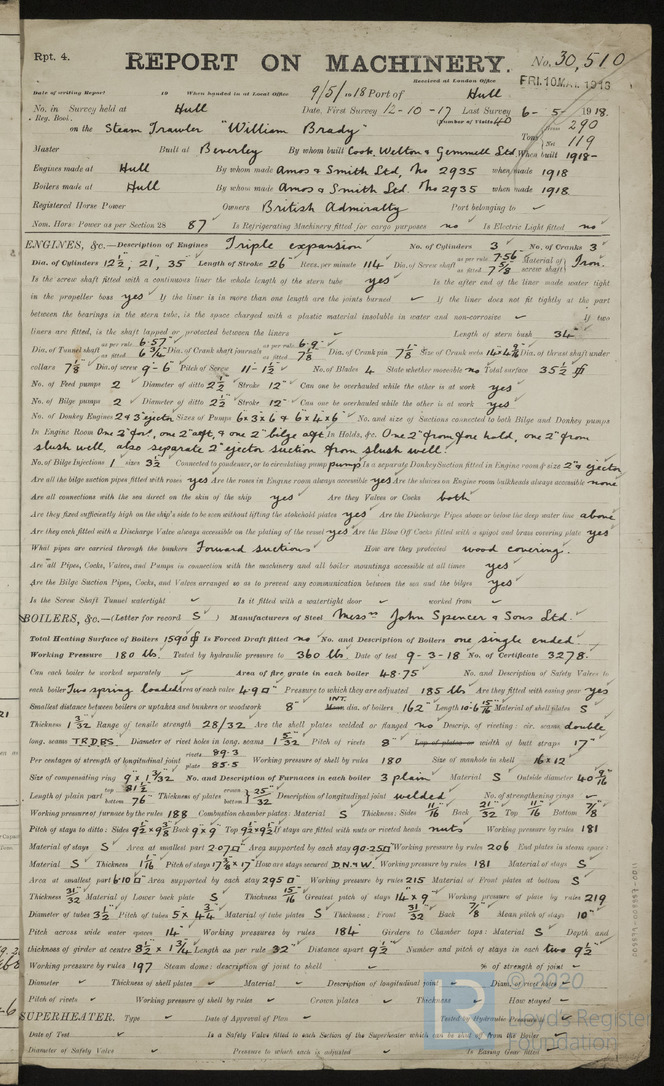 Rpt. 4.
REPORT ON MACHINERY.
No. 30,510
Received at London Office
FRI. 10 MAY 1918
Date of writing Report 19 When handed in at Local Office 9/5/ 1918 Port of Hull
No. in Survey held at Hull Date, First Survey 12-10-17 Last Survey 6-5-1918
Reg. Book. (Number of Visits 40
on the Steam Trawler "William Brady" Tons Gross 290 Net 119
Master Built at Beverley By whom built Cook, Welton & Gemmell Ltd. When built 1918
Engines made at Hull By whom made Amos & Smith Ltd, No 2935 when made 1918
Boilers made at Hull By whom made Amos & Smith Ltd. No 2935 when made 1918
Registered Horse Power Owners British Admiralty Port belonging to
Nom. Horse Power as per Section 28 87 Is Refrigerating Machinery fitted for cargo purposes no Is Electric Light fitted no
ENGINES, &c.—Description of Engines Triple expansion No. of Cylinders 3 No. of Cranks 3
Dia. of Cylinders 12½, 21, 35 Length of Stroke 26" Revs. per minute 114 Dia. of Screw shaft as per rule 7.56 as fitted 7⅝ Material of screw shaft Iron.
Is the screw shaft fitted with a continuous liner the whole length of the stern tube yes Is the after end of the liner made water tight
in the propeller boss yes If the liner is in more than one length are the joints burned If the liner does not fit tightly at the part
between the bearings in the stern tube, is the space charged with a plastic material insoluble in water and non-corrosive If two
liners are fitted, is the shaft lapped or protected between the liners Length of stern bush 34"
Dia. of Tunnel shaft as per rule 6.57 as fitted 6¾ Dia. of Crank shaft journals as per rule 6.9" as fitted 7⅛ Dia. of Crank pin 7⅛ Size of Crank webs Dia. of thrust shaft under
collars 7⅛ Dia. of screw 9-6 Pitch of Screw 11-1½ No. of Blades 4 State whether moveable no Total surface 35½
No. of Feed pumps 2 Diameter of ditto 2½ Stroke 12" Can one be overhauled while the other is at work yes
No. of Bilge pumps 2 Diameter of ditto 2½ Stroke 12" Can one be overhauled while the other is at work yes
No. of Donkey Engines 2 & 3" ejector Sizes of Pumps 6×3×6 & 6×4×6 No. and size of Suctions connected to both Bilge and Donkey pumps
In Engine Room One 2" for', one 2" aft, & one 2" bilge aft In Holds, &c. One 2" from fore hold, one 2" from
slush well, also separate 2" ejector suction from slush well.
No. of Bilge Injections 1 sizes 3½ Connected to condenser, or to circulating pump pump Is a separate Donkey Suction fitted in Engine room & size 2" & ejector
Are all the bilge suction pipes fitted with roses yes Are the roses in Engine room always accessible yes Are the sluices on Engine room bulkheads always accessible none
Are all connections with the sea direct on the skin of the ship yes Are they Valves or Cocks both
Are they fixed sufficiently high on the ship's side to be seen without lifting the stokehold plates yes Are the Discharge Pipes above or below the deep water line above
Are they each fitted with a Discharge Valve always accessible on the plating of the vessel yes Are the Blow Off Cocks fitted with a spigot and brass covering plate yes
What pipes are carried through the bunkers Forward suctions How are they protected wood covering.
Are all Pipes, Cocks, Valves, and Pumps in connection with the machinery and all boiler mountings accessible at all times yes
Are the Bilge Suction Pipes, Cocks, and Valves arranged so as to prevent any communication between the sea and the bilges yes
Is the Screw Shaft Tunnel watertight Is it fitted with a watertight door worked from
BOILERS, &c.—(Letter for record S) Manufacturers of Steel Messrs John Spencer & Sons Ltd.
Total Heating Surface of Boilers 1590 Is Forced Draft fitted no No. and Description of Boilers one single ended
Working Pressure 180 lbs. Tested by hydraulic pressure to 360 lbs. Date of test 9-3-18 No. of Certificate 3278.
Can each boiler be worked separately Area of fire grate in each boiler 48.75 No. and Description of Safety Valves to
each boiler Two spring loaded Area of each valve 4.9 Pressure to which they are adjusted 185 lbs Are they fitted with easing gear yes
Smallest distance between boilers or uptakes and bunkers or woodwork 8" INT. Mean dia. of boilers 162" Length 10-6 Material of shell plates S
Thickness 1 3/32 Range of tensile strength 28/32 Are the shell plates welded or flanged no Descrip. of riveting: cir. seams double
long. seams T.R.D.B.S. Diameter of rivet holes in long. seams 1 5/32 Pitch of rivets 8" Lap of plates or width of butt straps 17"
Per centages of strength of longitudinal joint rivets 89.3 plate 85.5 Working pressure of shell by rules 180 Size of manhole in shell 16×12
Size of compensating ring 9 × 1 3/32 No. and Description of Furnaces in each boiler 3 plain Material S Outside diameter 40 9/16
Length of plain part top 81½ bottom 76" Thickness of plates crown bottom 25/32 Description of longitudinal joint welded No. of strengthening rings
Working pressure of furnace by the rules 188 Combustion chamber plates: Material S Thickness: Sides 11/16 Back 21/32 Top 11/16 Bottom ⅞
Pitch of stays to ditto: Sides 9½×9⅜ Back 9"×9" Top 9½×9½ If stays are fitted with nuts or riveted heads nuts Working pressure by rules 181
Material of stays S Area at smallest part 2.07 Area supported by each stay 90.25 Working pressure by rules 206 End plates in steam space:
Material S Thickness 1 1/16 Pitch of stays 17⅜×17" How are stays secured D.N&W. Working pressure by rules 181 Material of stays S
Area at smallest part 6.10 Area supported by each stay 295 Working pressure by rules 215 Material of Front plates at bottom S
Thickness 31/32 Material of Lower back plate S Thickness 15/16 Greatest pitch of stays 14×9 Working pressure of plate by rules 219
Diameter of tubes 3½ Pitch of tubes 5×4¾ Material of tube plates S Thickness: Front 31/32 Back ⅞ Mean pitch of stays 10"
Pitch across wide water spaces 14" Working pressures by rules 184 Girders to Chamber tops: Material S Depth and
thickness of girder at centre 8½×1¾ Length as per rule 32" Distance apart 9½ Number and pitch of stays in each two 9½
Working pressure by rules 197 Steam dome: description of joint to shell % of strength of joint
Diameter Thickness of shell plates Material Description of longitudinal joint Diam. of rivet holes
Pitch of rivets Working pressure of shell by rules Crown plates Thickness How stayed
SUPERHEATER. Type Date of Approval of Plan Tested by Hydraulic Pressure to
Date of Test Is a Safety Valve fitted to each Section of the Superheater which can be shut off from the Boiler
Diameter of Safety Valve Pressure to which each is adjusted Is Easing Gear fitted
© 2020
Lloyd's Register
Foundation